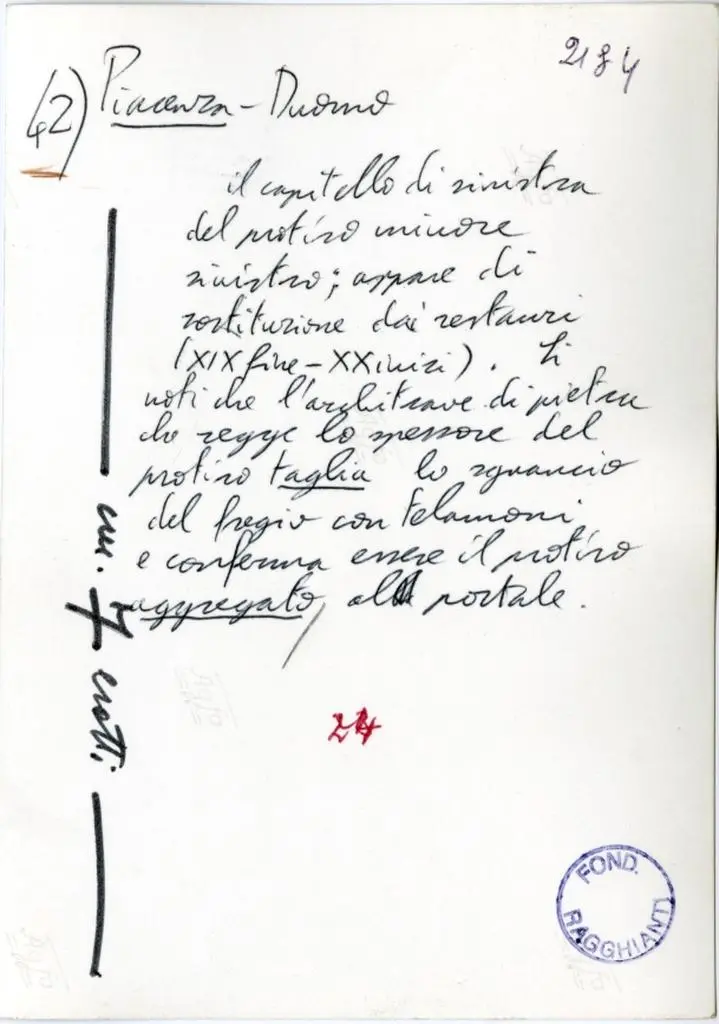 2184
42) Piacenza - Duomo
il capitello di sinistra
del protiro minore
sinistro; appare di
sostituzione dai restauri
(XIX fine - XX inizi). Si
noti che l'architrave di pietra
che regge lo spessore del
protiro taglia lo sguancio
del fregio con telamoni
e conferma essere il protiro
aggregato, al portale.
cm. 7 esatti
24
FOND. RAGGHIANTI